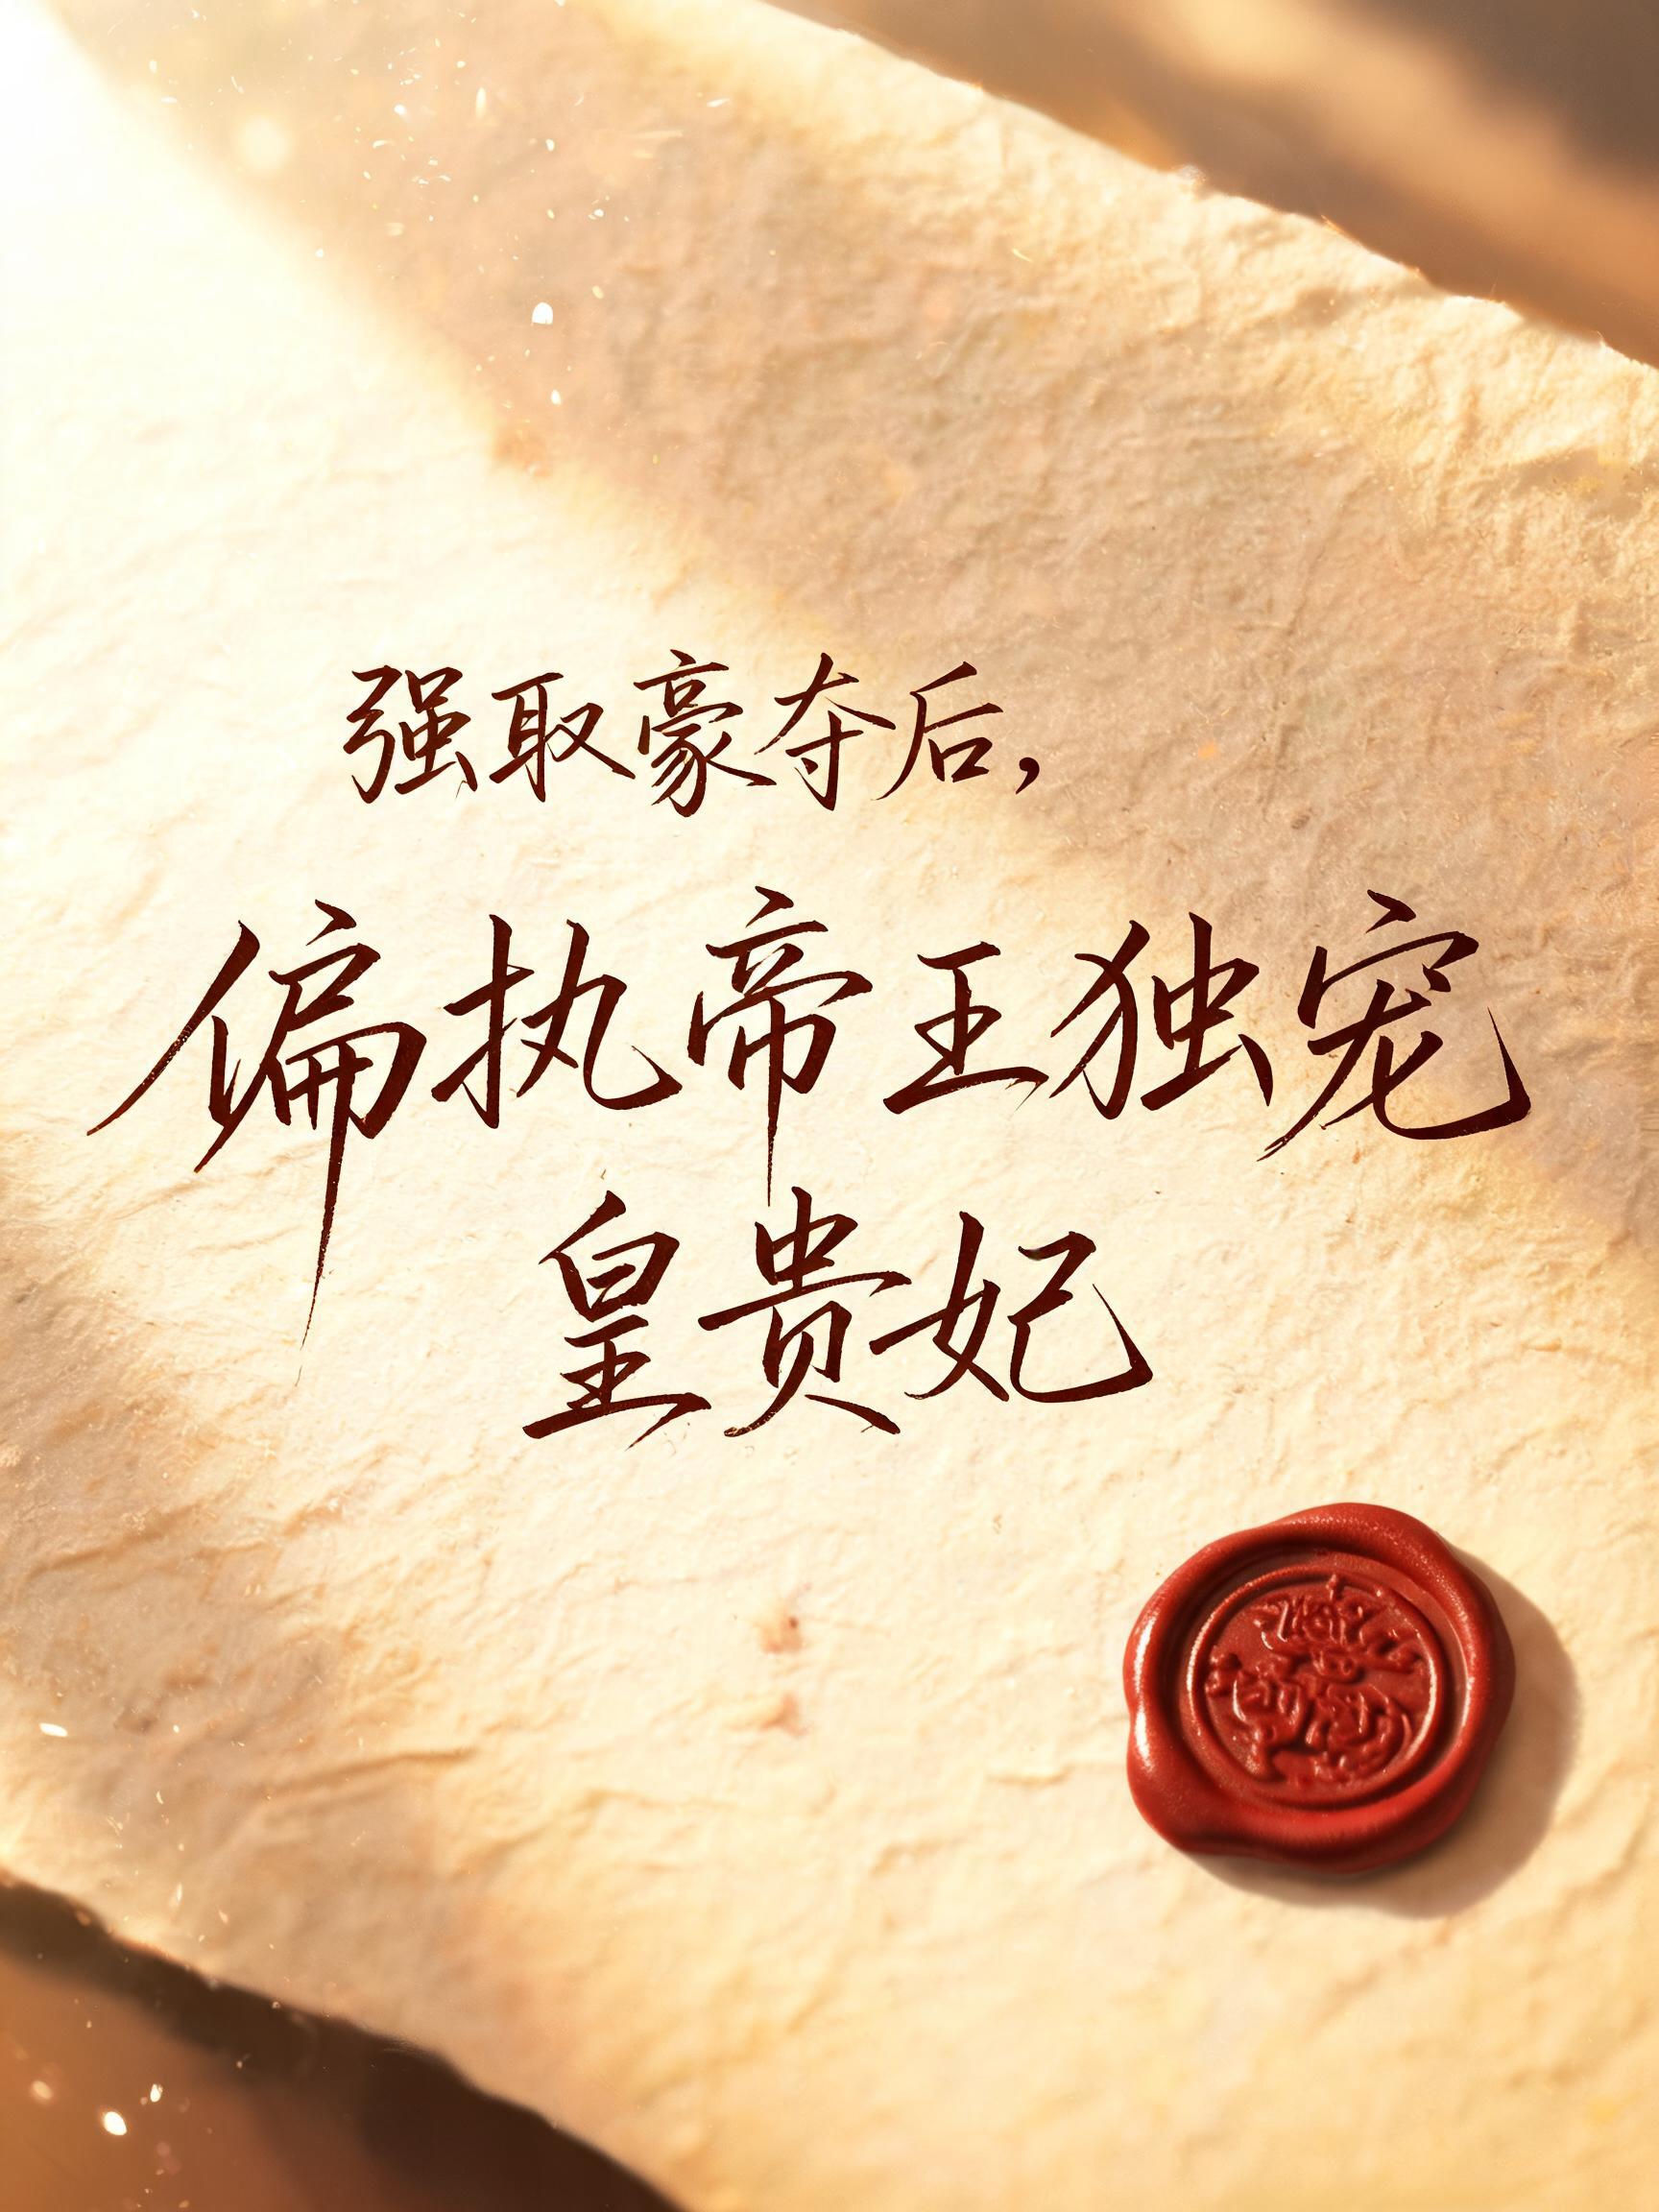 强取豪夺后,
偏执帝王独宠
皇贵妃